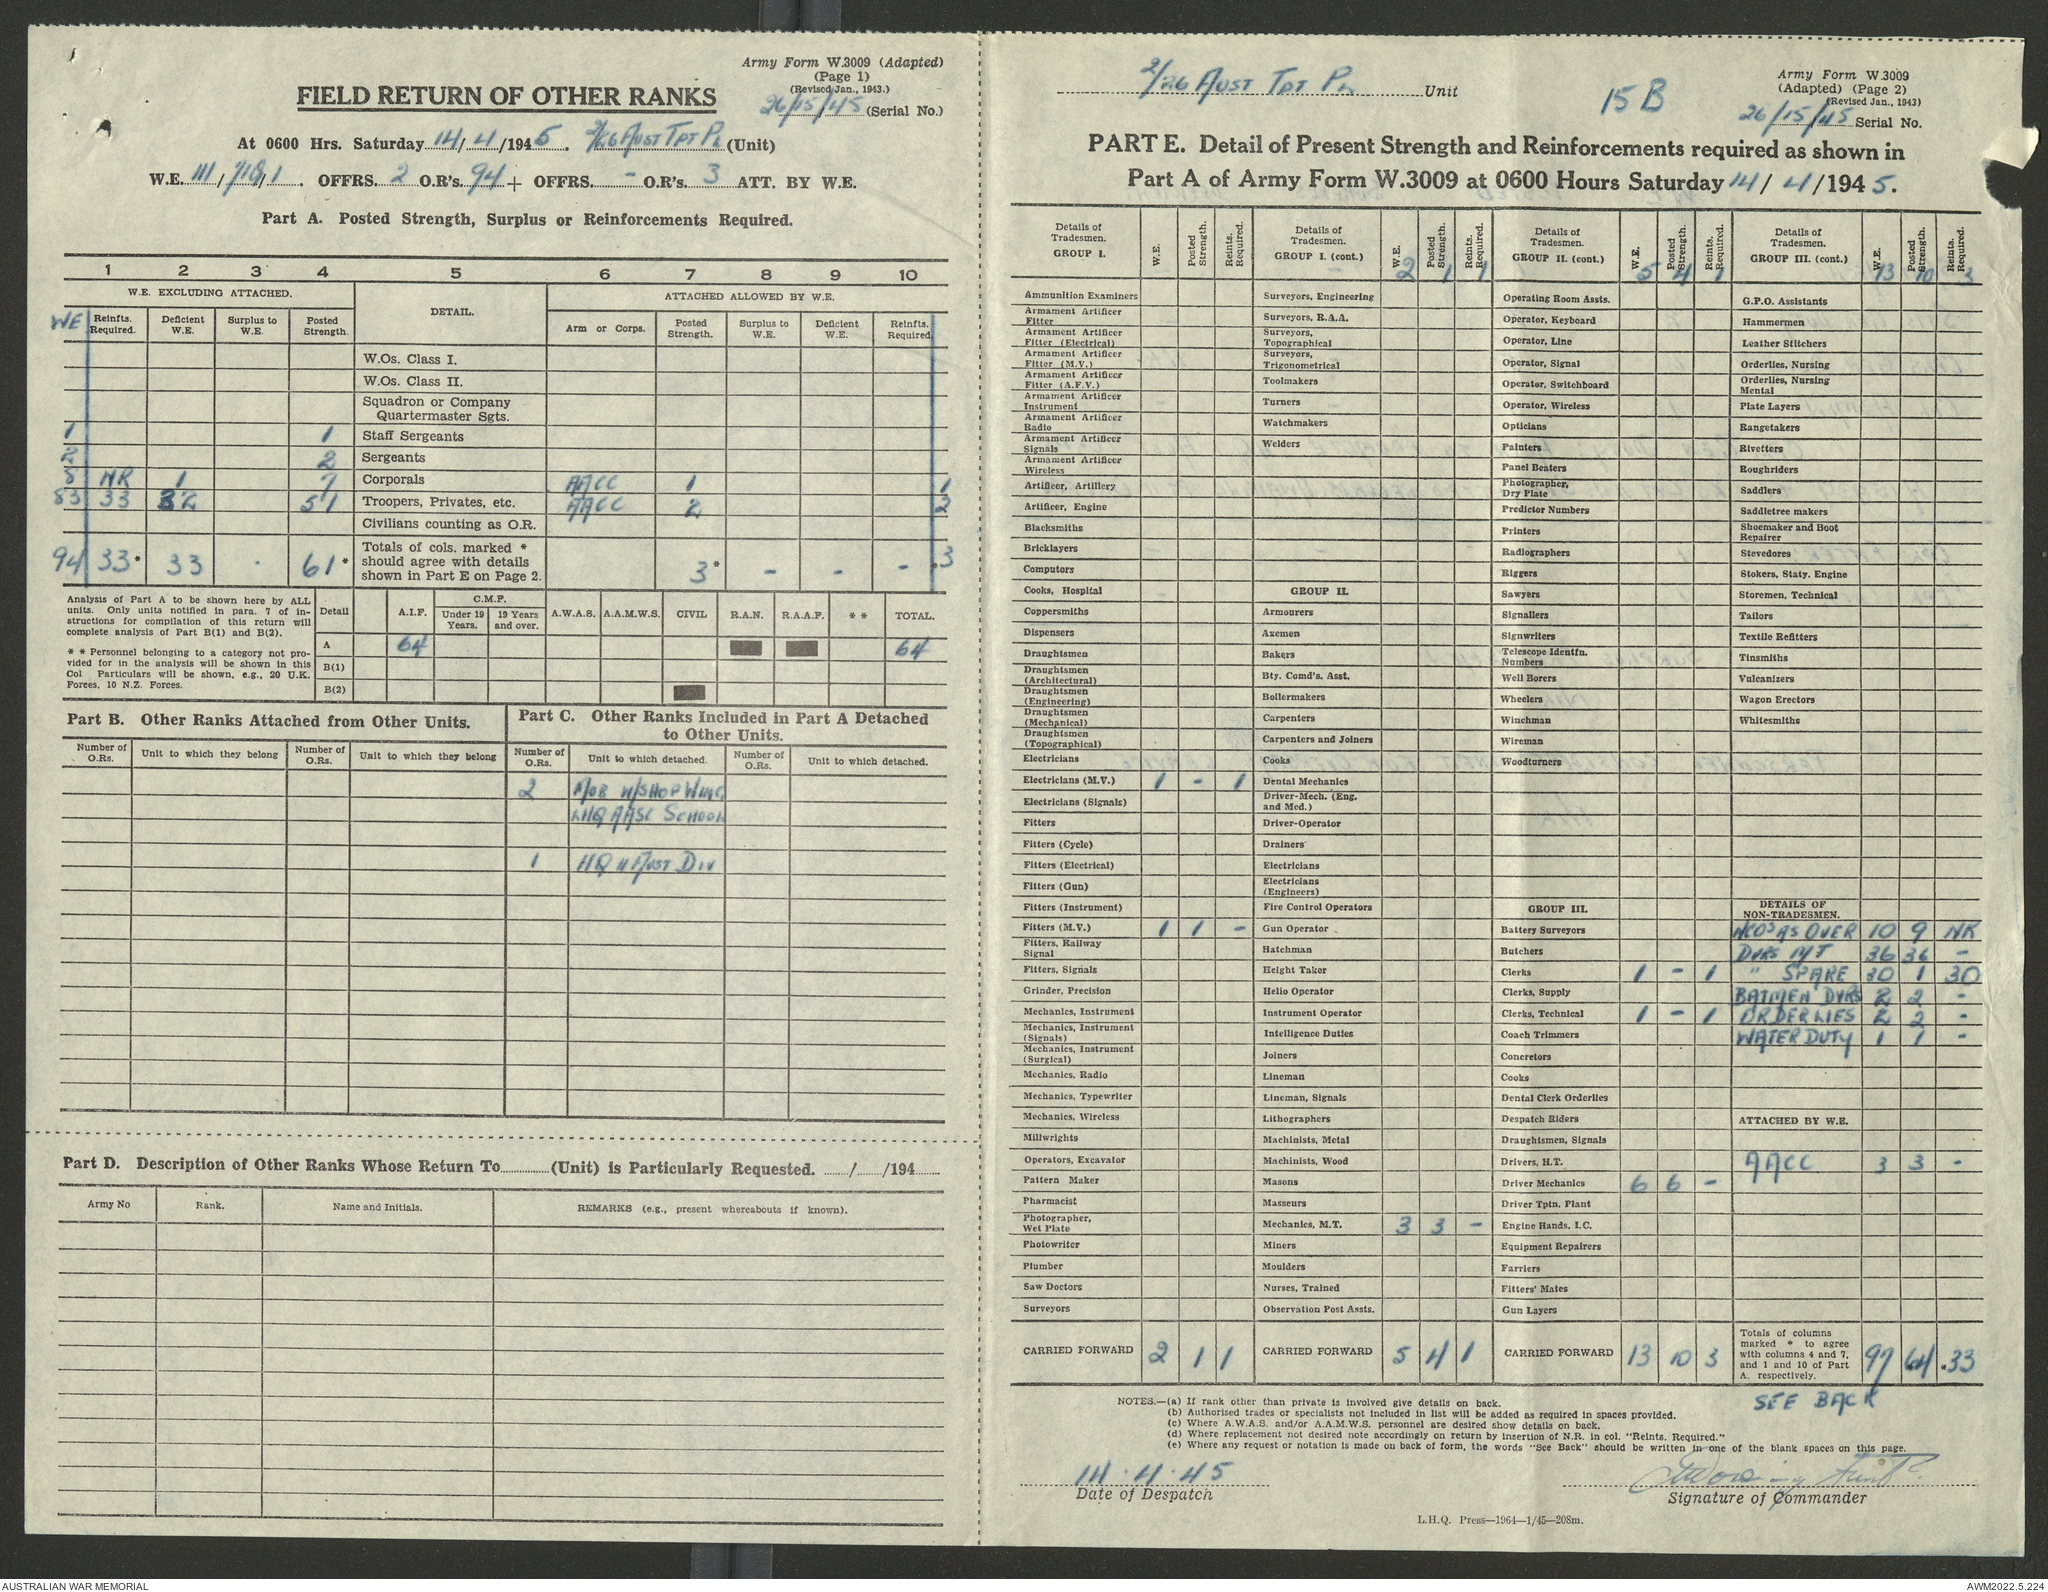 Army Form W.3009 (Adapted)
(Page 1)
(Revised Jan., 1943.)
FIELD RETURN OF OTHER RANKS
26/15/45 (Serial No.)
At 0600 Hrs. Saturday 14/4/1945. 2/26 AUST TPT PL (Unit)
W.E. 111/718/1. OFFRS. 2 O.R's. 94 + OFFRS. - O.R's. 3 ATT. BY W.E.
Part A. Posted Strength, Surplus or Reinforcements Required.
1 2 3 4 5 6 7 8 9 10
W.E. EXCLUDING ATTACHED. DETAIL. ATTACHED ALLOWED BY W.E.
WE Reinfts. Required. Deficient W.E. Surplus to W.E. Posted Strength. Arm or Corps. Posted Strength. Surplus to W.E. Deficient W.E. Reinfts. Required.
W.Os. Class I.
W.Os. Class II.
Squadron or Company
Quartermaster Sgts.
1 1 Staff Sergeants
2 2 Sergeants
8 NR 1 7 Corporals AACC 1 1
83 33 32 51 Troopers, Privates, etc. AACC 2 2
Civilians counting as O.R.
94 33* 33 . 61* Totals of cols. marked * should agree with details shown in Part E on Page 2. 3* - - - *3
Analysis of Part A to be shown here by ALL
units. Only units notified in para. 7 of in-
structions for compilation of this return will
complete analysis of Part B(1) and B(2).
* * Personnel belonging to a category not pro-
vided for in the analysis will be shown in this
Col. Particulars will be shown, e.g., 20 U.K.
Forces, 10 N.Z. Forces.
Detail A.I.F. C.M.F. Under 19 Years. 19 Years and over. A.W.A.S. A.A.M.W.S. CIVIL R.A.N. R.A.A.F. * * TOTAL.
A 64 64
B(1)
B(2)
Part B. Other Ranks Attached from Other Units.
Number of O.Rs. Unit to which they belong Number of O.Rs. Unit to which they belong
Part C. Other Ranks Included in Part A Detached
to Other Units.
Number of O.Rs. Unit to which detached. Number of O.Rs. Unit to which detached.
2 MOB W/SHOP WING
LHQ AASC SCHOOL
1 HQ 11 AUST DIV
Part D. Description of Other Ranks Whose Return To (Unit) is Particularly Requested. / /194
Army No Rank. Name and Initials. REMARKS (e.g., present whereabouts if known).
2/26 AUST TPT PL Unit
15B
Army Form W.3009
(Adapted) (Page 2)
(Revised Jan., 1943)
26/15/45 Serial No.
PART E. Detail of Present Strength and Reinforcements required as shown in
Part A of Army Form W.3009 at 0600 Hours Saturday 14/4/1945.
Details of Tradesmen. GROUP I. W.E. Posted Strength. Reints. Required.
Ammunition Examiners
Armament Artificer Fitter
Armament Artificer Fitter (Electrical)
Armament Artificer Fitter (M.V.)
Armament Artificer Fitter (A.F.V.)
Armament Artificer Instrument
Armament Artificer Radio
Armament Artificer Signals
Armament Artificer Wireless
Artificer, Artillery
Artificer, Engine
Blacksmiths
Bricklayers
Computors
Cooks, Hospital
Coppersmiths
Dispensers
Draughtsmen
Draughtsmen (Architectural)
Draughtsmen (Engineering)
Draughtsmen (Mechanical)
Draughtsmen (Topographical)
Electricians
Electricians (M.V.) 1 - 1
Electricians (Signals)
Fitters
Fitters (Cycle)
Fitters (Electrical)
Fitters (Gun)
Fitters (Instrument)
Fitters (M.V.) 1 1 -
Fitters, Railway Signal
Fitters, Signals
Grinder, Precision
Mechanics, Instrument
Mechanics, Instrument (Signals)
Mechanics, Instrument (Surgical)
Mechanics, Radio
Mechanics, Typewriter
Mechanics, Wireless
Millwrights
Operators, Excavator
Pattern Maker
Pharmacist
Photographer, Wet Plate
Photowriter
Plumber
Saw Doctors
Surveyors
CARRIED FORWARD 2 1 1
Details of Tradesmen. GROUP I. (cont.) W.E. Posted Strength. Reints. Required.
2 1 1
Surveyors, Engineering
Surveyors, R.A.A.
Surveyors, Topographical
Surveyors, Trigonometrical
Toolmakers
Turners
Watchmakers
Welders
GROUP II.
Armourers
Axemen
Bakers
Bty. Comd's. Asst.
Boilermakers
Carpenters
Carpenters and Joiners
Cooks
Dental Mechanics
Driver-Mech. (Eng. and Med.)
Driver-Operator
Drainers
Electricians
Electricians (Engineers)
Fire Control Operators
Gun Operator
Hatchman
Height Taker
Helio Operator
Instrument Operator
Intelligence Duties
Joiners
Lineman
Lineman, Signals
Lithographers
Machinists, Metal
Machinists, Wood
Masons
Masseurs
Mechanics, M.T. 3 3 -
Miners
Moulders
Nurses, Trained
Observation Post Assts.
CARRIED FORWARD 5 4 1
Details of Tradesmen. GROUP II. (cont.) W.E. Posted Strength. Reints. Required.
5 4 1
Operating Room Assts.
Operator, Keyboard
Operator, Line
Operator, Signal
Operator, Switchboard
Operator, Wireless
Opticians
Painters
Panel Beaters
Photographer, Dry Plate
Predictor Numbers
Printers
Radiographers
Riggers
Sawyers
Signallers
Signwriters
Telescope Identfn. Numbers
Well Borers
Wheelers
Winchman
Wireman
Woodturners
GROUP III.
Battery Surveyors
Butchers
Clerks 1 - 1
Clerks, Supply
Clerks, Technical 1 - 1
Coach Trimmers
Concretors
Cooks
Dental Clerk Orderlies
Despatch Riders
Draughtsmen, Signals
Drivers, H.T.
Driver Mechanics 6 6 -
Driver Tptn. Plant
Engine Hands, I.C.
Equipment Repairers
Farriers
Fitters' Mates
Gun Layers
CARRIED FORWARD 13 10 3
Details of Tradesmen. GROUP III. (cont.) W.E. Posted Strength. Reints. Required.
13 10 3
G.P.O. Assistants
Hammermen
Leather Stitchers
Orderlies, Nursing
Orderlies, Nursing Mental
Plate Layers
Rangetakers
Rivetters
Roughriders
Saddlers
Saddletree makers
Shoemaker and Boot Repairer
Stevedores
Stokers, Staty. Engine
Storemen, Technical
Tailors
Textile Refitters
Tinsmiths
Vulcanizers
Wagon Erectors
Whitesmiths
DETAILS OF NON-TRADESMEN.
NCOs AS OVER 10 9 NR
DVRS M/T 36 36 -
" SPARE 30 1 30
BATMEN DVRS 2 2 -
ORDERLIES 2 2 -
WATER DUTY 1 1 -
ATTACHED BY W.E.
AACC 3 3 -
Totals of columns marked * to agree with columns 4 and 7, and 1 and 10 of Part A. respectively. 97 64 *33
SEE BACK
NOTES.—(a) If rank other than private is involved give details on back.
(b) Authorised trades or specialists not included in list will be added as required in spaces provided.
(c) Where A.W.A.S. and/or A.A.M.W.S. personnel are desired show details on back.
(d) Where replacement not desired note accordingly on return by insertion of N.R. in col. "Reints. Required."
(e) Where any request or notation is made on back of form, the words "See Back" should be written in one of the blank spaces on this page.
14.4.45
Date of Despatch
Signature of Commander
L.H.Q. Press—1964—1/45—208m.
AUSTRALIAN WAR MEMORIAL
AWM2022.5.224